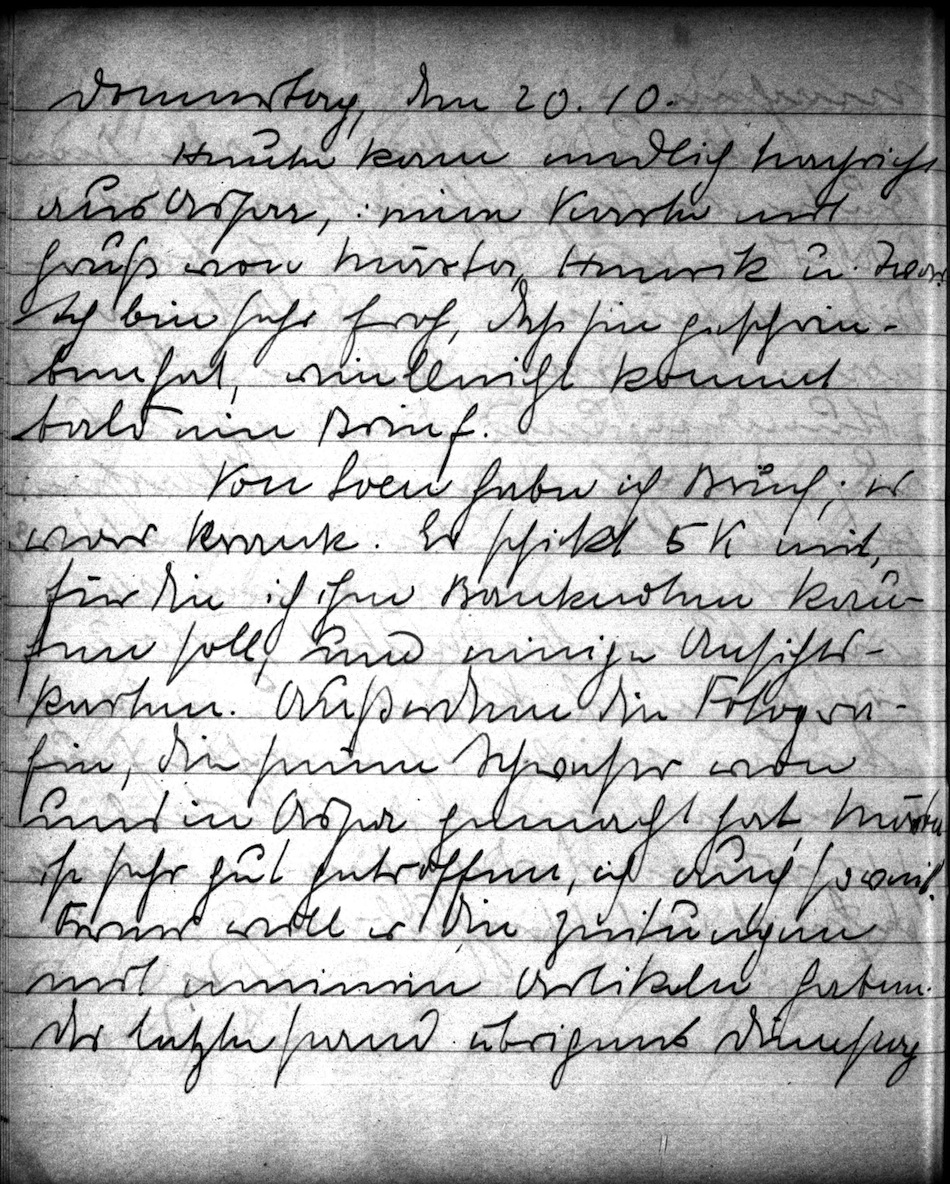 Donnerstag, den 20. 10.
Heute kam endlich Nachricht
aus Aspa, : eine Karte mit
Gruß von Märta, Henrik u. Ivar.
Ich bin sehr froh, daß sie geschrie-
ben hat, vielleicht kommt
bald ein Brief.
Von Sven habe ich Brief; er
war krank. Er schickt 5 K mit,
für die ich ihm Banknoten kau-
fen soll, und einige Ansichts-
karten. Außerdem die Fotogra-
fie, die seine Schwester von
uns in Aspa gemacht hat, Märta
ist sehr gut getroffen, ich auch soweit.
Ferner will er die Zeitungen
mit meinen Artikeln haben.
Der letzte stand übrigens Dienstag